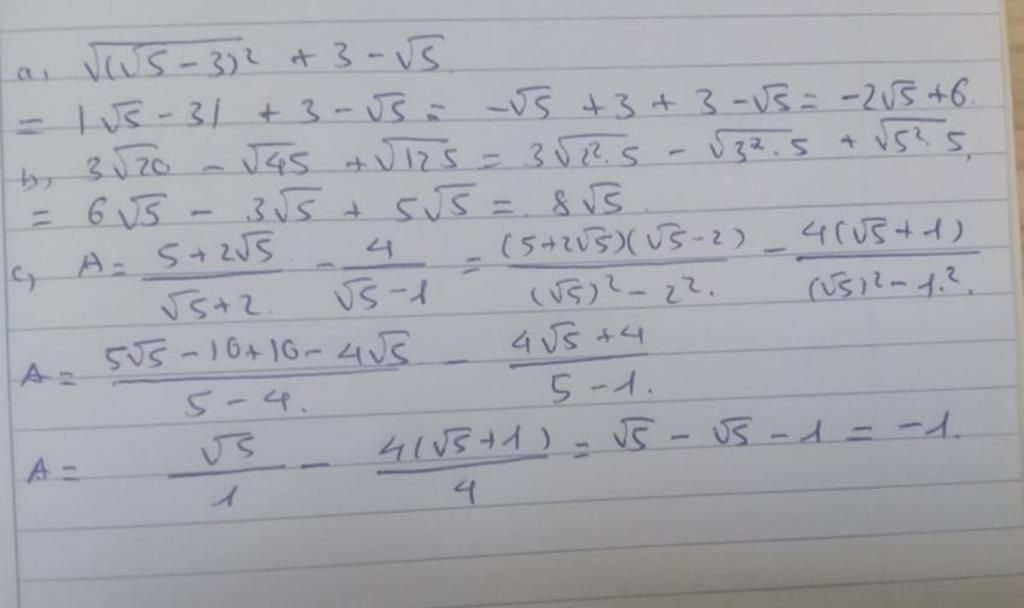 a, √(√5 - 3)² + 3 - √5
= |√5 - 3| + 3 - √5 = -√5 + 3 + 3 - √5 = -2√5 + 6.
b, 3√20 - √45 + √125 = 3√2².5 - √3².5 + √5².5,
= 6√5 - 3√5 + 5√5 = 8√5.
c, A = (5 + 2√5)/(√5 + 2) - 4/(√5 - 1) = ((5 + 2√5)(√5 - 2))/((√5)² - 2²) - (4(√5 + 1))/((√5)² - 1²).
A = (5√5 - 10 + 10 - 4√5)/(5 - 4) - (4√5 + 4)/(5 - 1).
A = √5/1 - (4(√5 + 1))/4 = √5 - √5 - 1 = -1.